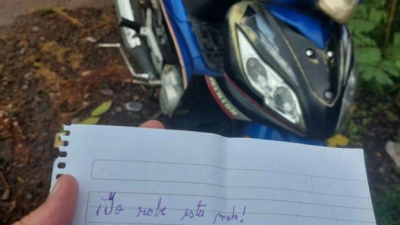 ¡Yo robe esta moto!